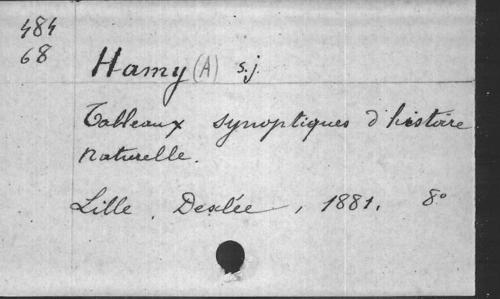 484
68
Hamy (A) s.j.
Tableaux synoptiques d'histoire
naturelle.
Lille, Desclée, 1881. 8°